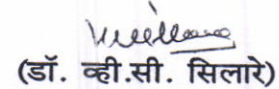 (डॉ. व्ही.सी. सिलारे)